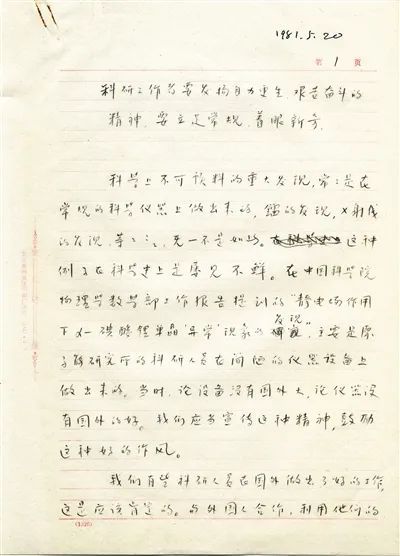 1981.5.20
第 1 页
科研工作者要发扬自力更生、艰苦奋斗的
精神，要立足常规，着眼新奇
科学上不可预料的重大发现，常常是在
常规的科学仪器上做出来的，镭的发现，X射线
的发现，等等，无一不是如此。这种
例子在科学史上是屡见不鲜。在中国科学院
物理学数学部工作报告提到的"静电场作用
下α-碘酸锂单晶'异常'现象的发现"，主要是原
子能研究所的科研人员在简陋的仪器设备上
做出来的。当时，论设备没有国外大，论仪器没
有国外的好。我们应当宣传这种精神，鼓励
这种好的作风。
我们有些科研人员在国外做出了好的工作，
这是应该肯定的。与外国人合作，利用他们的